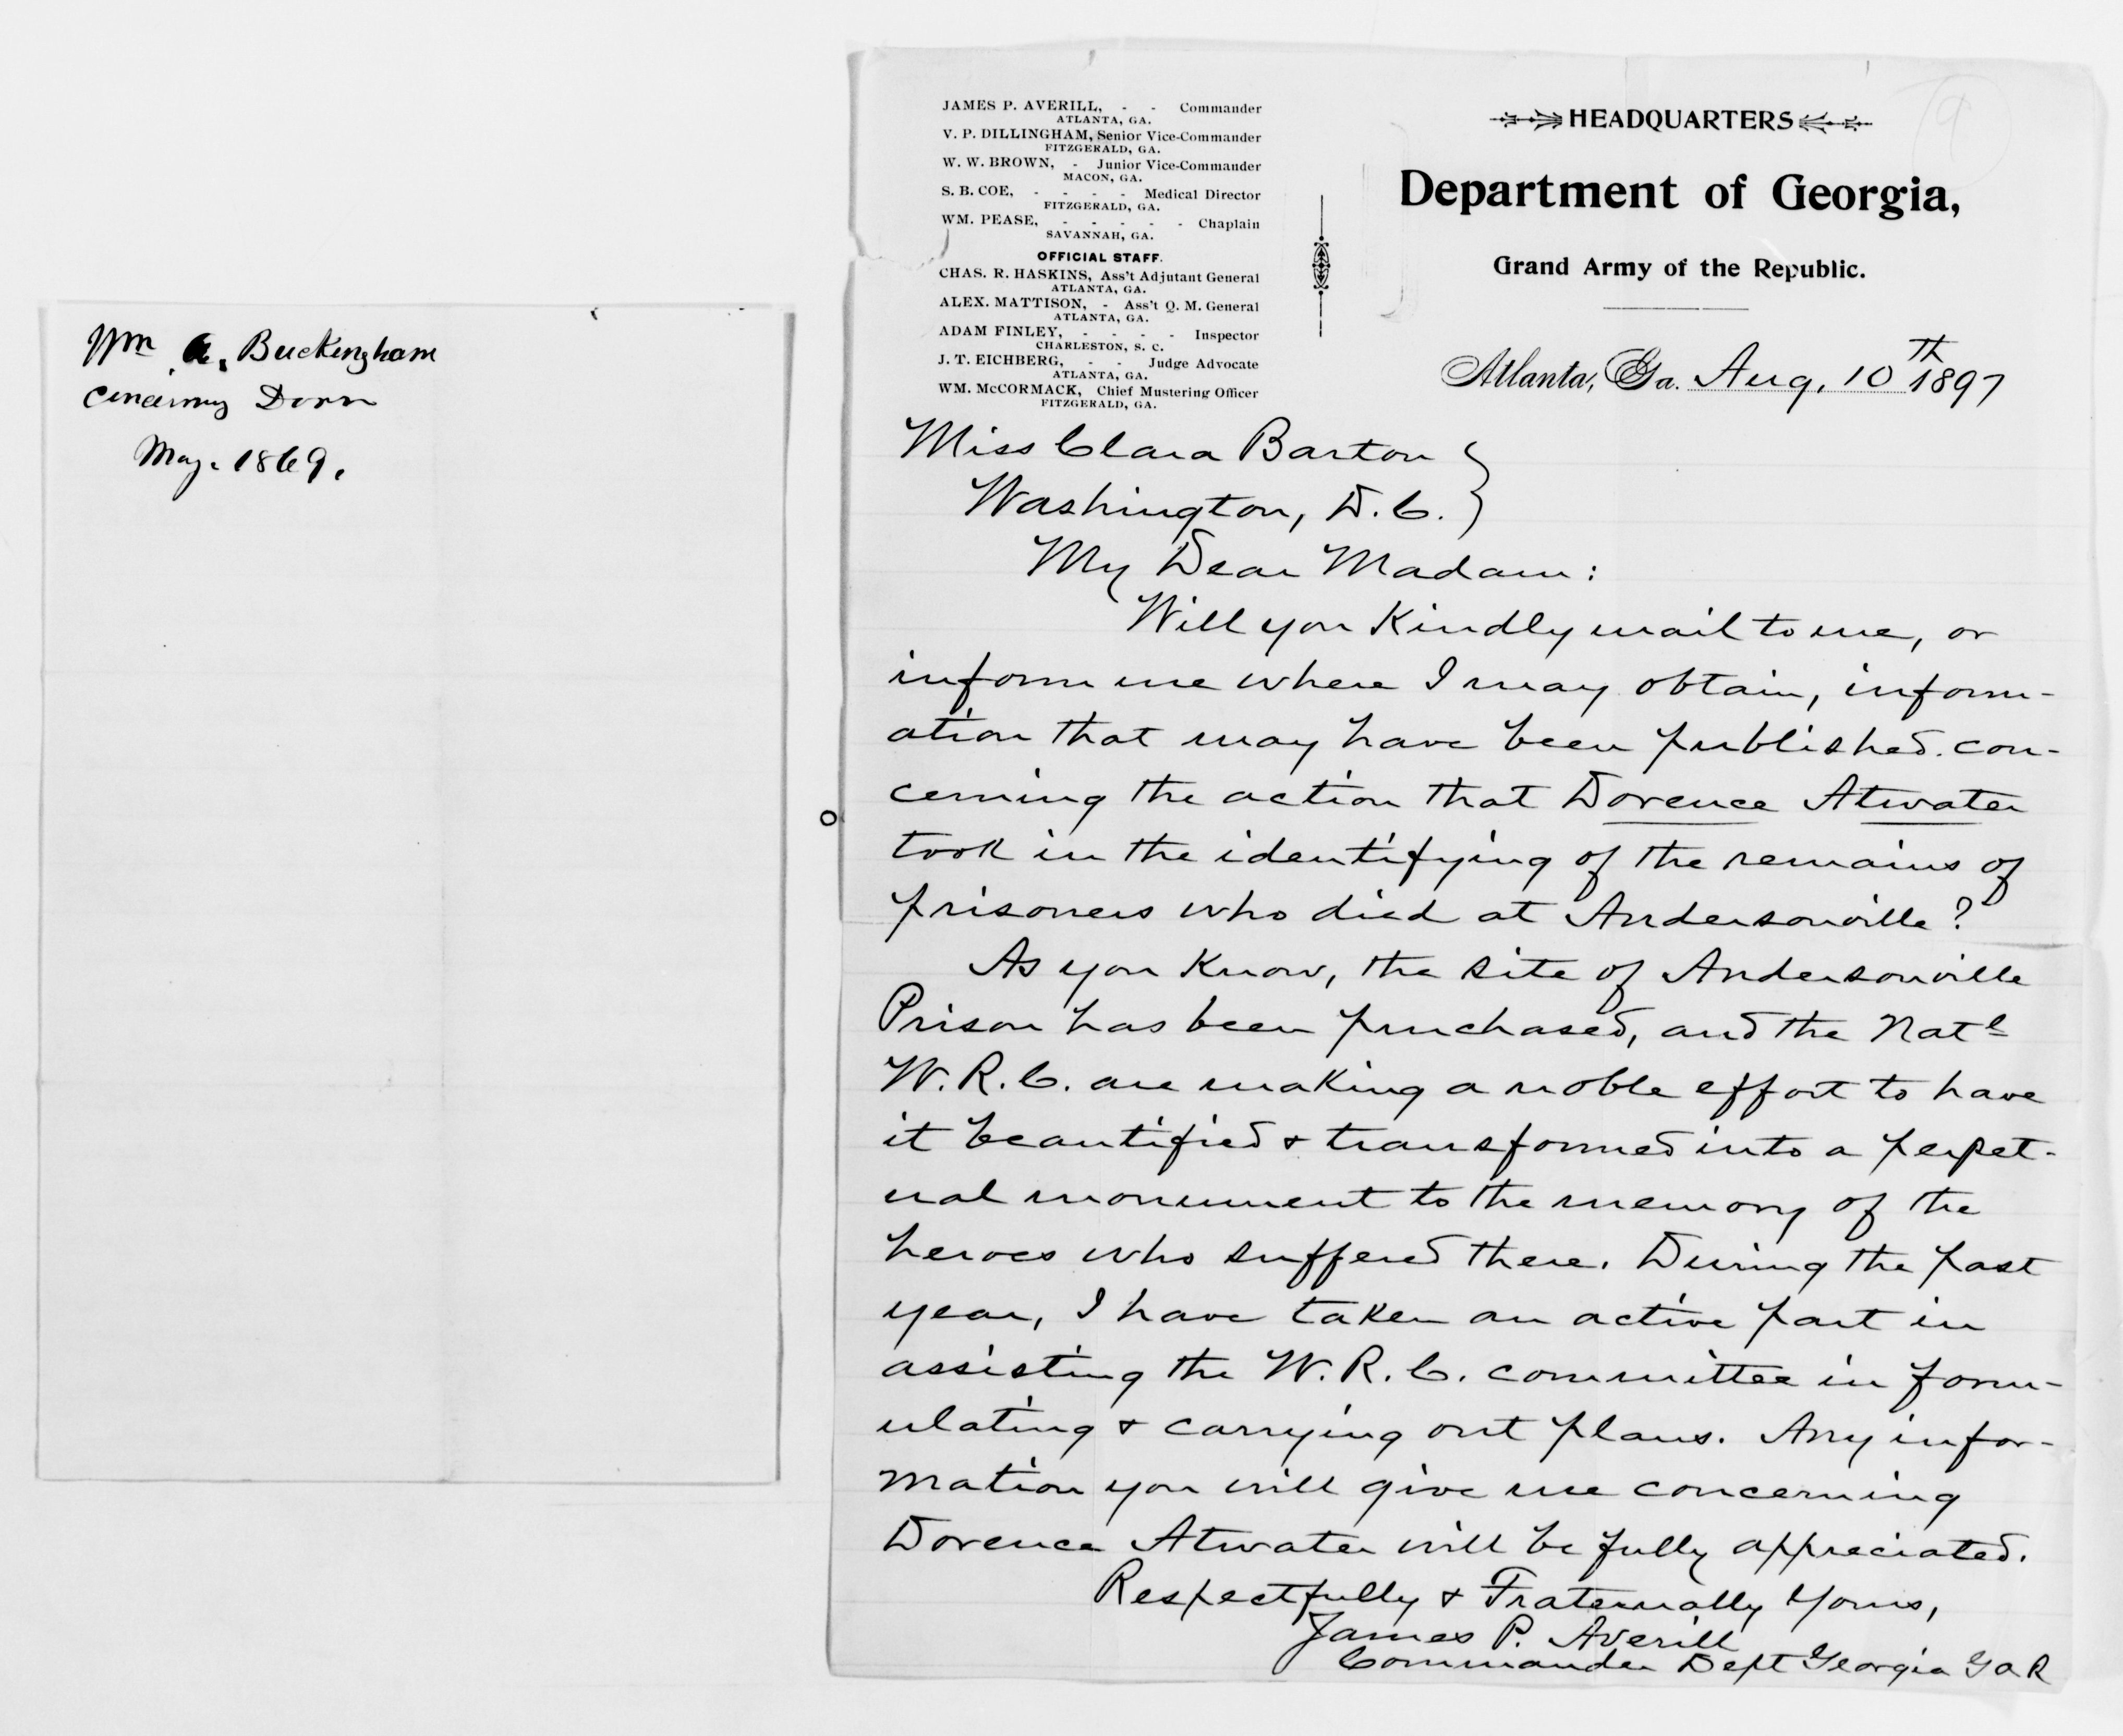 Wm A. Buckingham
Dorr
May. 1869.
JAMES P. AVERILL, - - Commander
ATLANTA, GA.
V. P. DILLINGHAM, Senior Vice-Commander
FITZGERALD, GA.
W. W. BROWN, - Junior Vice-Commander
MACON, GA.
S. B. COE, - - - - Medical Director
FITZGERALD, GA.
WM. PEASE, - - - - - Chaplain
SAVANNAH, GA.
OFFICIAL STAFF.
CHAS. R. HASKINS, Ass't Adjutant General
ATLANTA, GA.
ALEX. MATTISON, - Ass't Q. M. General
ATLANTA, GA.
ADAM FINLEY, - - - - Inspector
CHARLESTON, S. C.
J. T. EICHBERG, - - Judge Advocate
ATLANTA, GA.
WM. McCORMACK, Chief Mustering Officer
FITZGERALD, GA.
HEADQUARTERS
Department of Georgia,
Grand Army of the Republic.
9
Atlanta, Ga. Aug. 10th 1897
Miss Clara Barton
Washington, D.C.
My Dear Madam:
Will you Kindly mail to me, or
inform me where I may obtain, inform-
ation that may have been published con-
cerning the action that Dorence Atwater
took in the identifying of the remains of
prisoners who died at Andersonville?
As you Know, the site of Andersonville
Prison has been purchased, and the Natl
W.R.C. are making a noble effort to have
it beautified & transformed into a perpet-
ual monument to the memory of the
heroes who suffered there. During the past
year, I have taken an active part in
assisting the W.R.C. committee in form-
ulating & carrying out plans. Any infor-
mation you will give me concerning
Dorence Atwater will be fully appreciated.
Respectfully & Fraternally Yours,
James P. Averill
Commander Dept Georgia G A R